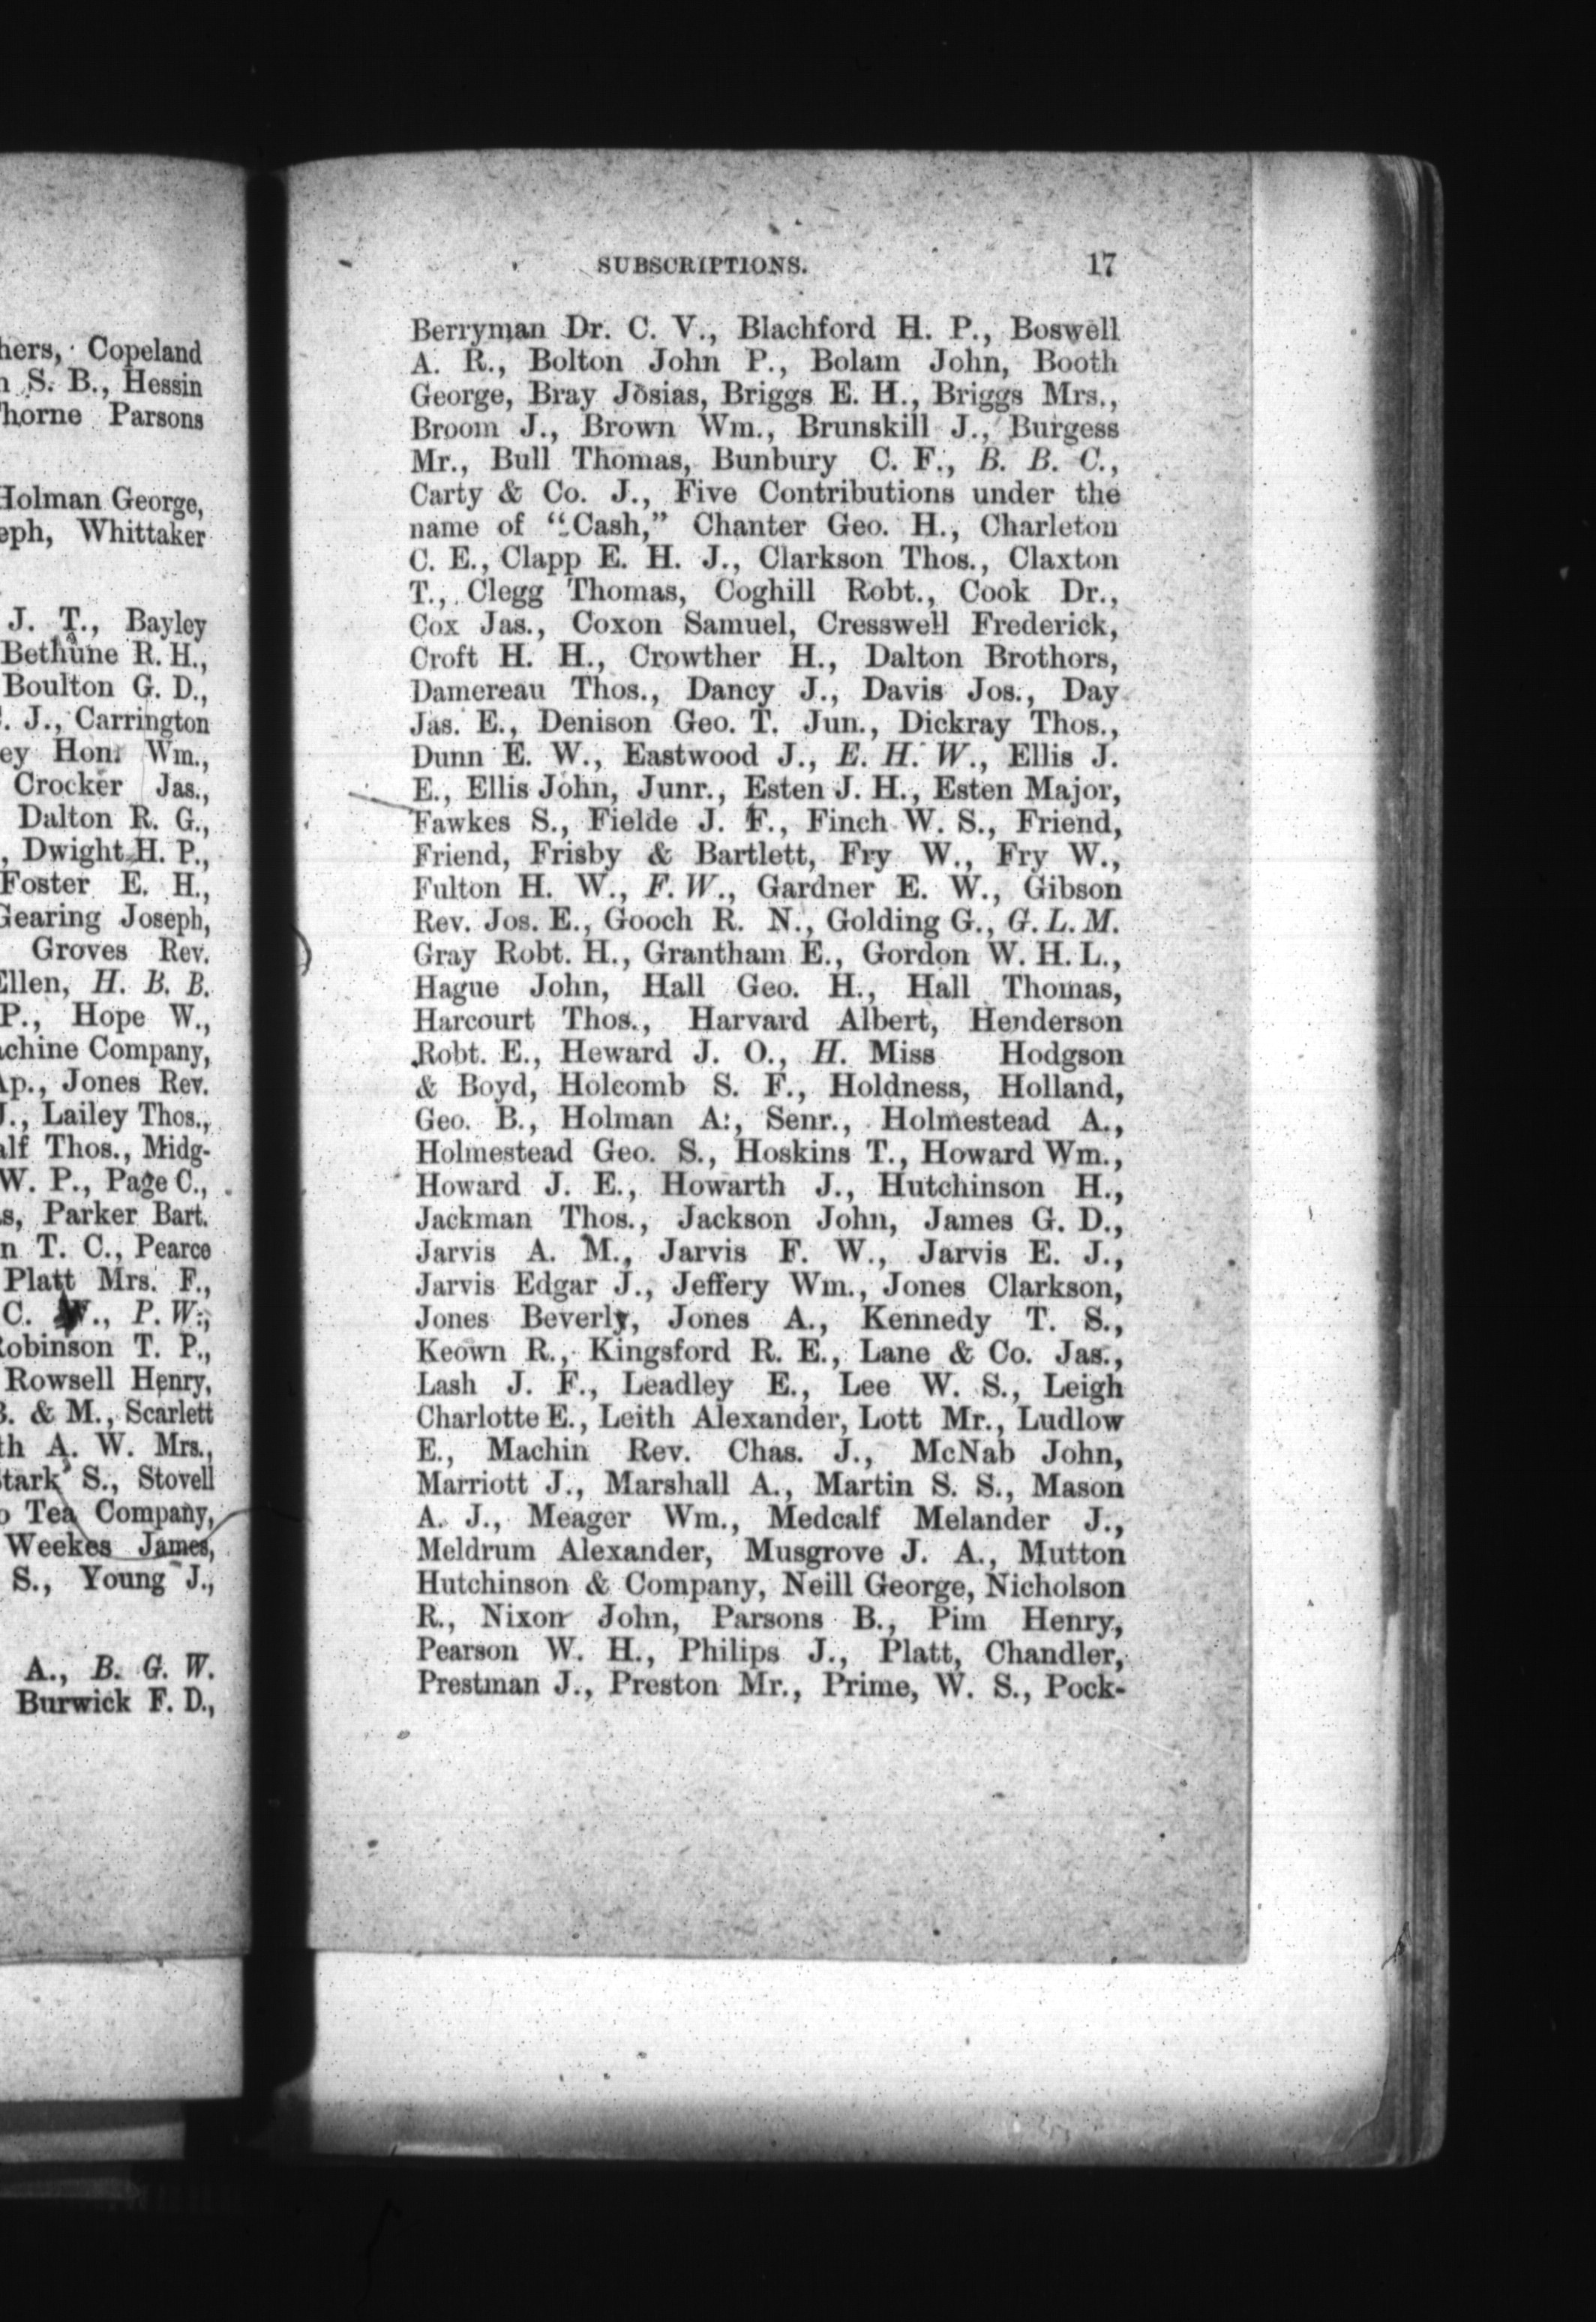 hers, Copeland
S. B., Hessin
Thorne Parsons
Holman George,
eph, Whittaker
J. T., Bayley
Bethune R. H.,
Boulton G. D.,
J., Carrington
ey Hon. Wm.,
Crocker Jas.,
Dalton R. G.,
, Dwight H. P.,
Foster E. H.,
Gearing Joseph,
Groves Rev.
Ellen, H. B. B.
P., Hope W.,
achine Company,
Ap., Jones Rev.
J., Lailey Thos.,
alf Thos., Midg-
W. P., Page C.,
s, Parker Bart.
n T. C., Pearce
Platt Mrs. F.,
C. W., P. W.,
Robinson T. P.,
Rowsell Henry,
B. & M., Scarlett
th A. W. Mrs.,
Stark S., Stovell
o Tea Company,
Weekes James,
S., Young J.,
A., B. G. W.
Burwick F. D.,
SUBSCRIPTIONS. 17
Berryman Dr. C. V., Blachford H. P., Boswell
A. R., Bolton John P., Bolam John, Booth
George, Bray Josias, Briggs E. H., Briggs Mrs.,
Broom J., Brown Wm., Brunskill J., Burgess
Mr., Bull Thomas, Bunbury C. F., B. B. C.,
Carty & Co. J., Five Contributions under the
name of "Cash," Chanter Geo. H., Charleton
C. E., Clapp E. H. J., Clarkson Thos., Claxton
T., Clegg Thomas, Coghill Robt., Cook Dr.,
Cox Jas., Coxon Samuel, Cresswell Frederick,
Croft H. H., Crowther H., Dalton Brothors,
Damereau Thos., Dancy J., Davis Jos., Day
Jas. E., Denison Geo. T. Jun., Dickray Thos.,
Dunn E. W., Eastwood J., E. H. W., Ellis J.
E., Ellis John, Junr., Esten J. H., Esten Major,
Fawkes S., Fielde J. F., Finch W. S., Friend,
Friend, Frisby & Bartlett, Fry W., Fry W.,
Fulton H. W., F. W., Gardner E. W., Gibson
Rev. Jos. E., Gooch R. N., Golding G., G. L. M.
Gray Robt. H., Grantham E., Gordon W. H. L.,
Hague John, Hall Geo. H., Hall Thomas,
Harcourt Thos., Harvard Albert, Henderson
Robt. E., Heward J. O., H. Miss Hodgson
& Boyd, Holcomb S. F., Holdness, Holland,
Geo. B., Holman A., Senr., Holmestead A.,
Holmestead Geo. S., Hoskins T., Howard Wm.,
Howard J. E., Howarth J., Hutchinson H.,
Jackman Thos., Jackson John, James G. D.,
Jarvis A. M., Jarvis F. W., Jarvis E. J.,
Jarvis Edgar J., Jeffery Wm., Jones Clarkson,
Jones Beverly, Jones A., Kennedy T. S.,
Keown R., Kingsford R. E., Lane & Co. Jas.,
Lash J. F., Leadley E., Lee W. S., Leigh
Charlotte E., Leith Alexander, Lott Mr., Ludlow
E., Machin Rev. Chas. J., McNab John,
Marriott J., Marshall A., Martin S. S., Mason
A. J., Meager Wm., Medcalf Melander J.,
Meldrum Alexander, Musgrove J. A., Mutton
Hutchinson & Company, Neill George, Nicholson
R., Nixon John, Parsons B., Pim Henry,
Pearson W. H., Philips J., Platt, Chandler,
Prestman J., Preston Mr., Prime, W. S., Pock-